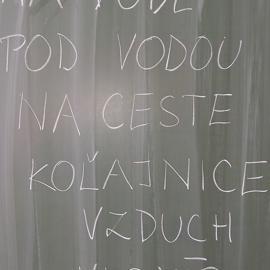 POD VODOU
NA CESTE
KOĽAJNICE
VZDUCH